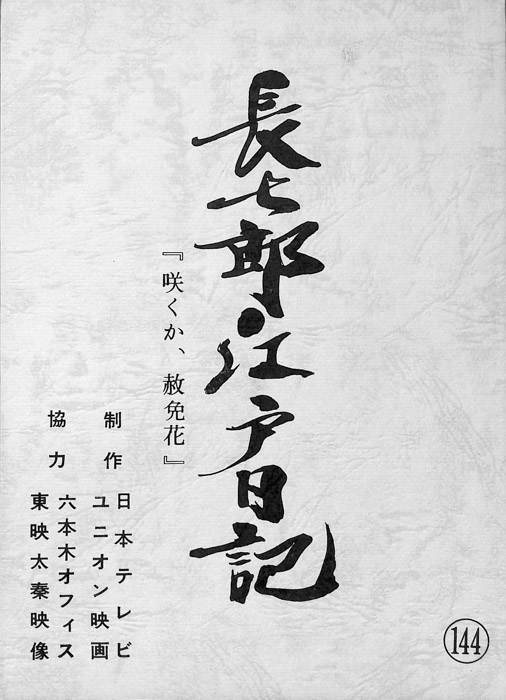 長七郎●江戸日記
『咲くか、赦免花』
制作
日本テレビ
ユニオン映画
協力
六本木オフィス
東映太秦映像
144